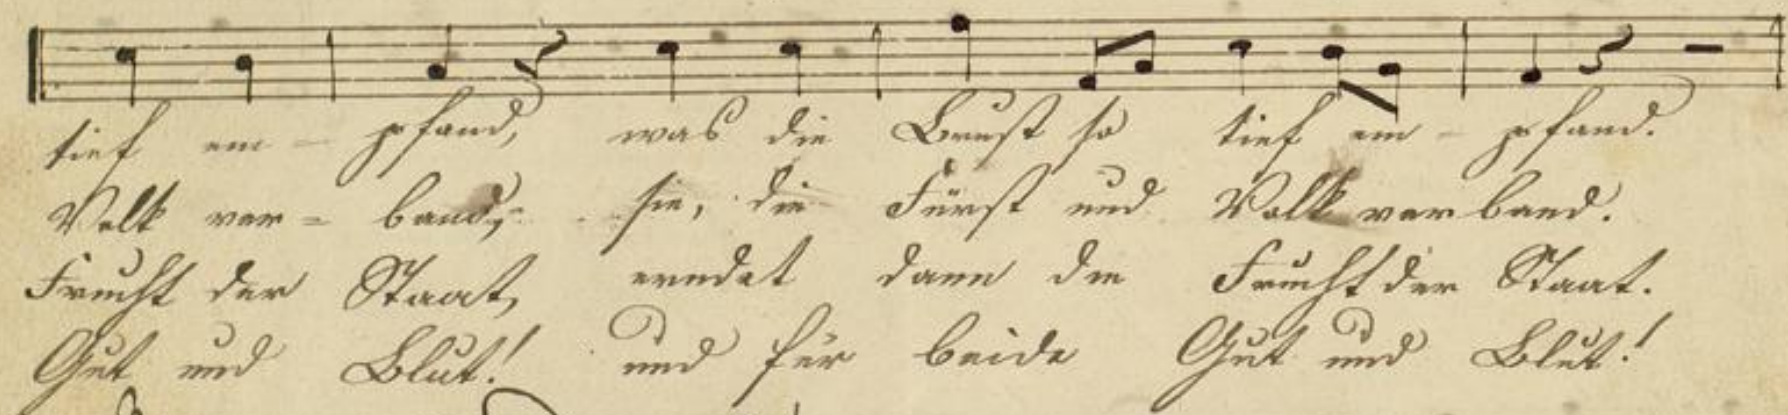 tief em - pfand, was die Brust so tief em - pfand.
Volk ver - band, sie, die Fürst und Volk verband.
Frucht der Staat, erndet dann die Frucht der Staat.
Gut und Blut! und für beide Gut und Blut!